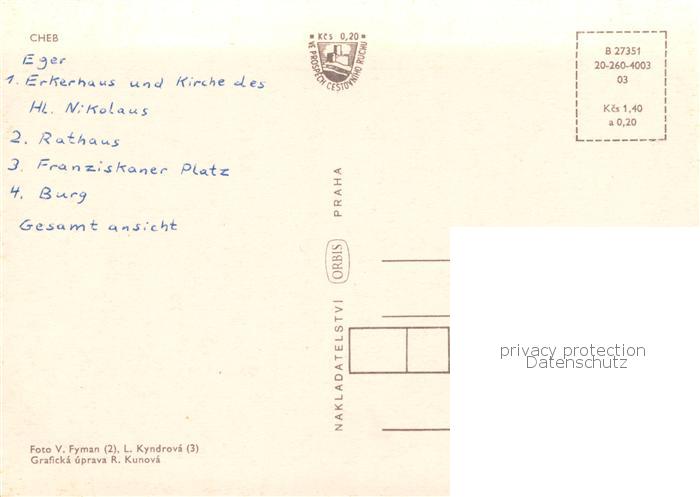 CHEB
Eger
1. Erkerhaus und Kirche des
Hl. Nikolaus
2. Rathaus
3. Franziskaner Platz
4. Burg
Gesamtansicht
Kčs 0,20
VE PROSPĚCH CESTOVNÍHO RUCHU
B 27351
20-260-4003
03
Kčs 1,40
a 0,20
NAKLADATELSTVÍ ORBIS PRAHA
privacy protection
Datenschutz
Foto V. Fyman (2), L. Kyndrová (3)
Grafická úprava R. Kunová